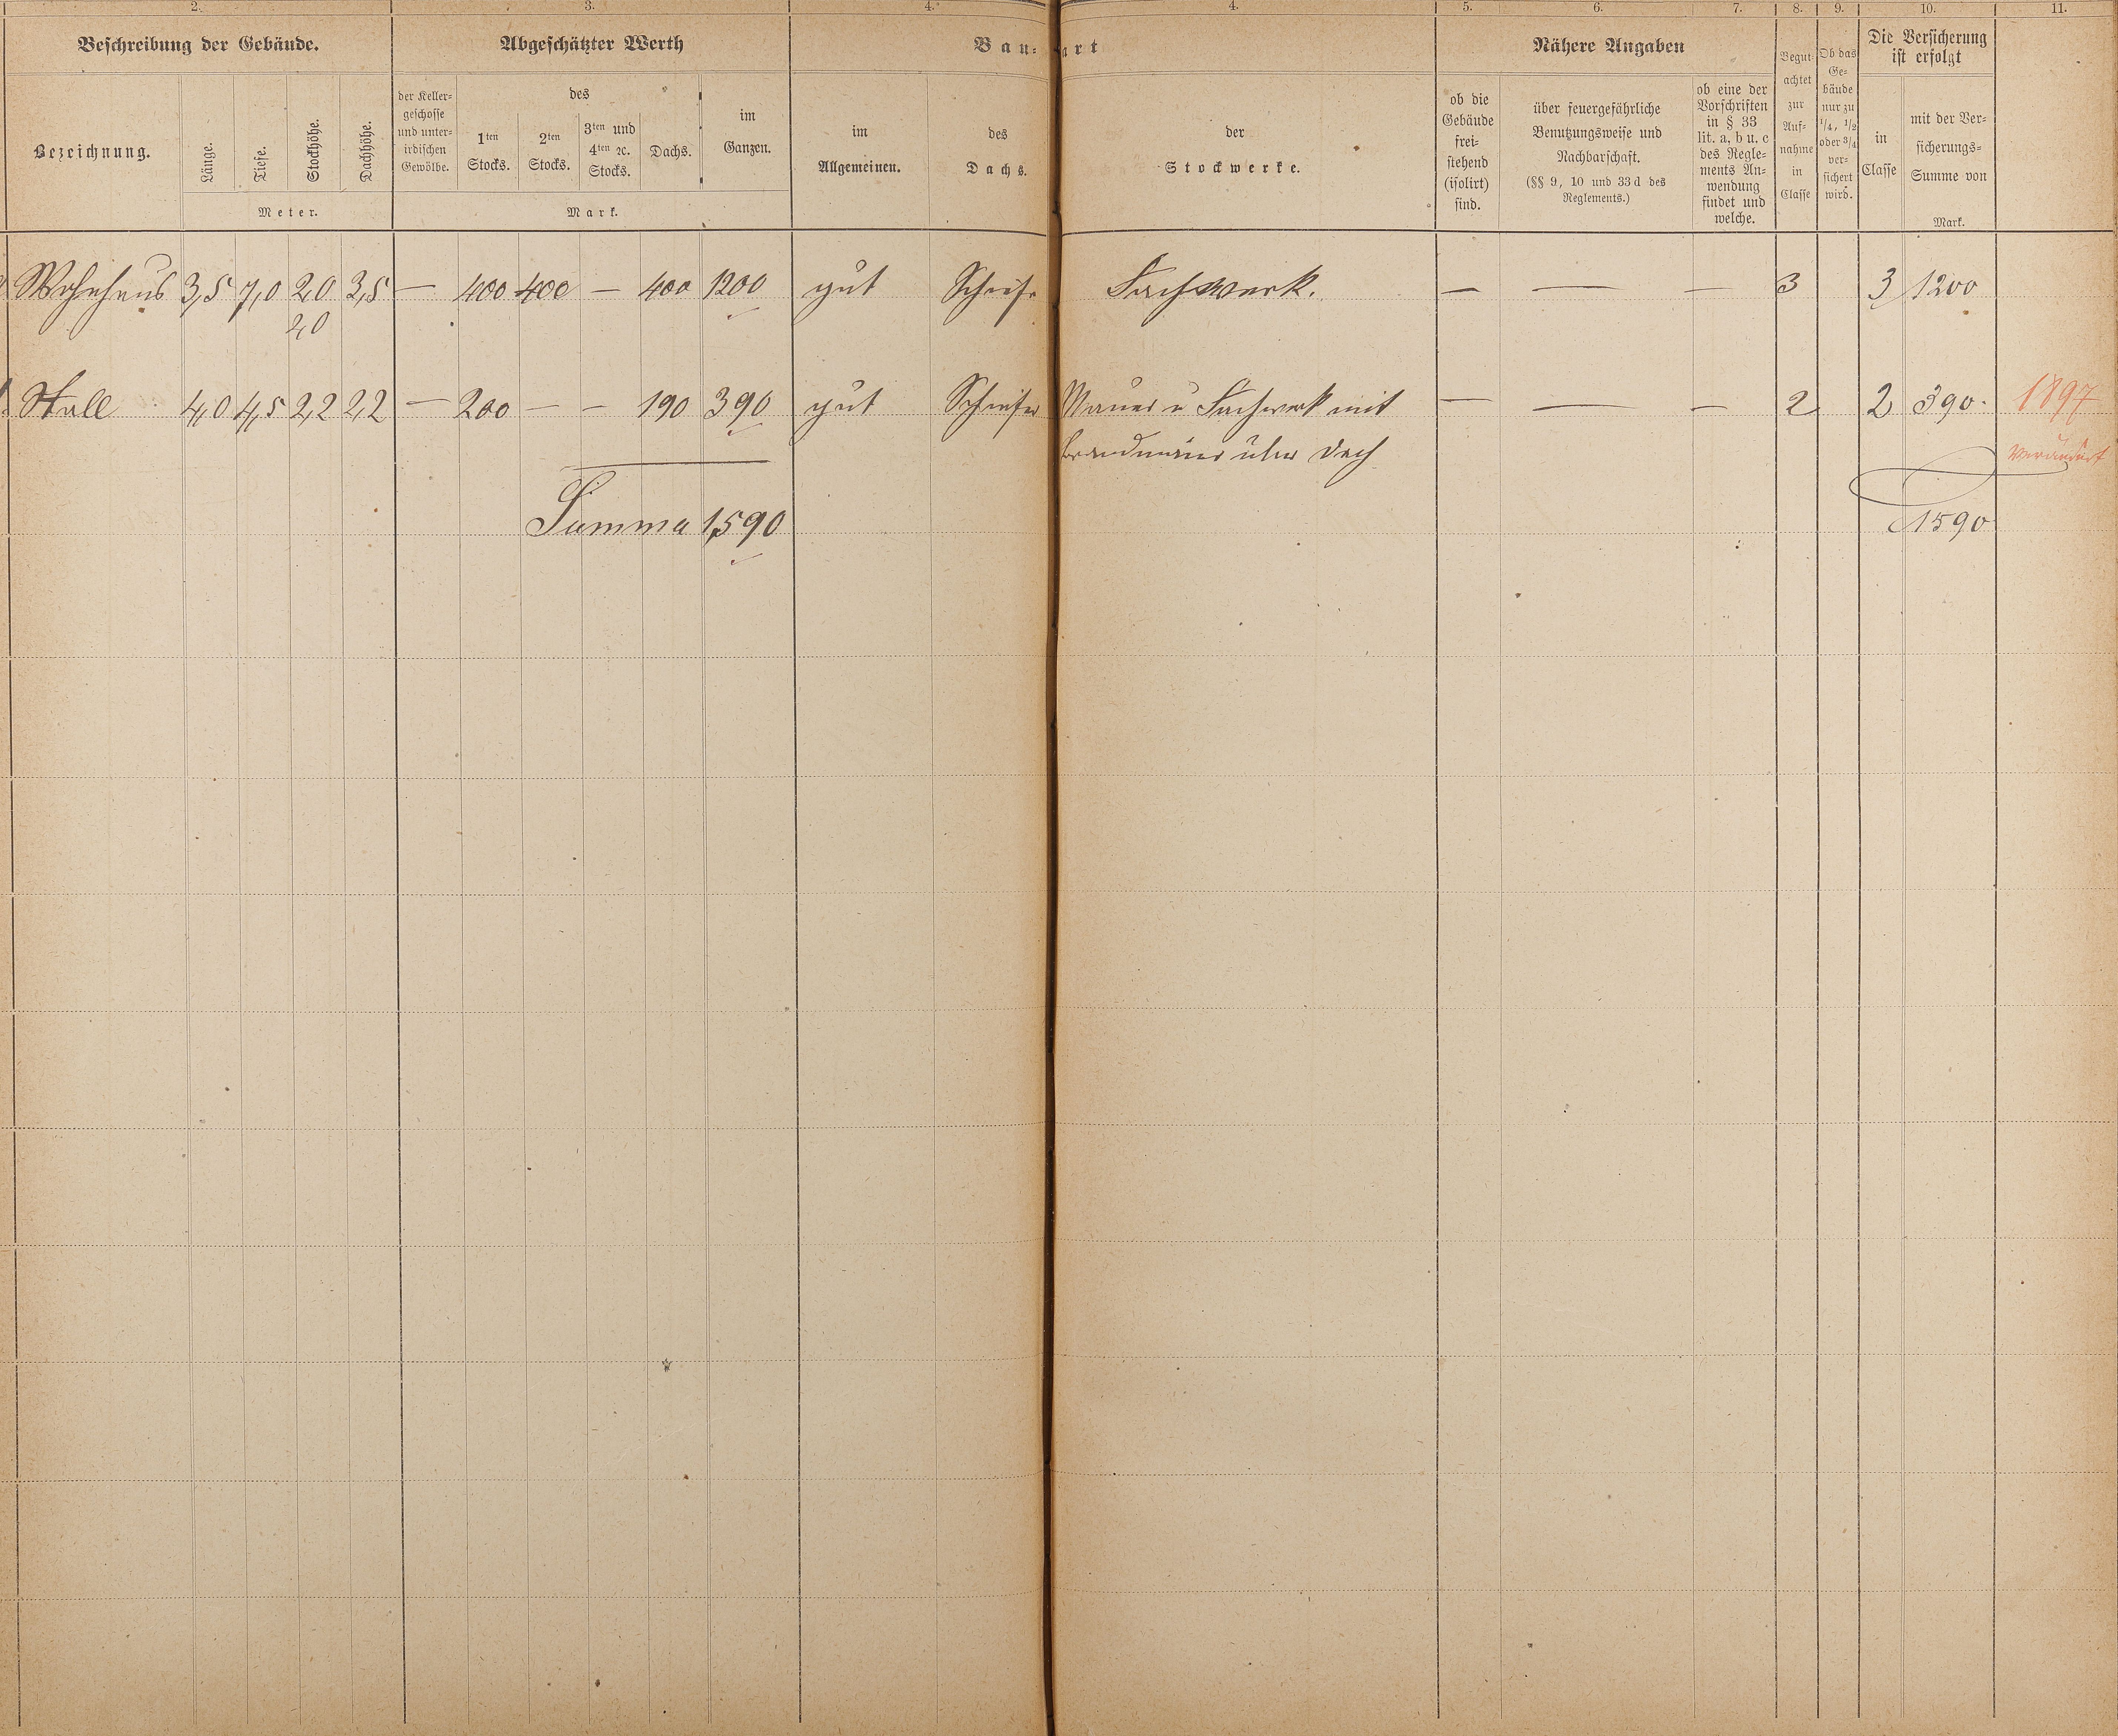 2. 3. 4. 4. 5. 6. 7. 8. 9. 10. 11.
Beschreibung der Gebäude.
Abgeschätzter Werth
Bau- art
Nähere Angaben
Begut-
achtet
zur
Auf-
nahme
in
Classe
Ob das
Ge-
bäude
nur zu
1/4, 1/2
oder 3/4
ver-
sichert
wird.
Die Versicherung
ist erfolgt
Bezeichnung.
Länge.
Tiefe.
Stockhöhe.
Dachhöhe.
Meter.
der Keller-
geschosse
und unter-
irdischen
Gewölbe.
des
1ten
Stocks.
2ten
Stocks.
3ten und
4ten ꝛc.
Stocks.
Dachs.
im
Ganzen.
Mark.
im
Allgemeinen.
des
Dachs.
der
Stockwerke.
ob die
Gebäude
frei-
stehend
(isolirt)
sind.
über feuergefährliche
Benutzungsweise und
Nachbarschaft.
(§§ 9, 10 und 33d des
Reglements.)
ob eine der
Vorschriften
in § 33
lit. a, b u. c
des Regle-
ments An-
wendung
findet und
welche.
in
Classe
mit der Ver-
sicherungs-
Summe von
Mark.
Wohnhaus 3,5 7,0 2,0 3,5 — 400 400 — 400 1200 gut Schiefr Fachwerk. — — — 3 3 1200
2,0
Stall 4,0 4,5 2,2 2,2 — 200 — — 190 390 gut Schiefer Mauer u Fachwerk mit — — — 2 2 390. 1897
Brandmauer über Dach Verändert
Summa 1,590 1590